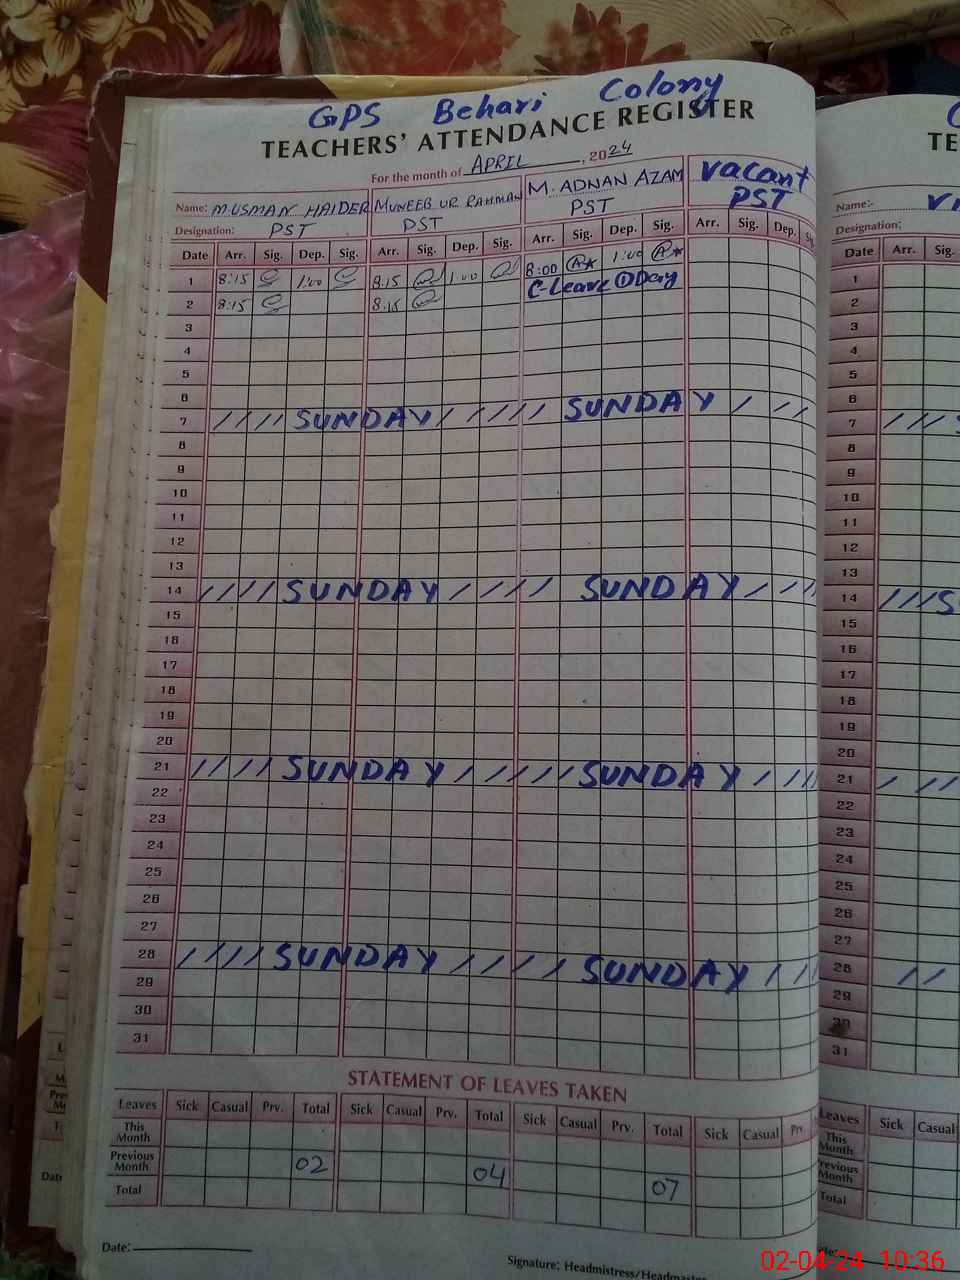 GPS Behari Colony
TEACHERS' ATTENDANCE REGISTER
For the month of APRIL, 2024
Name: M.USMAN HAIDER MUNEEB UR RAHMAN M. ADNAN AZAM Vacant
Designation: PST PST PST PST
Date Arr. Sig. Dep. Sig. Arr. Sig. Dep. Sig. Arr. Sig. Dep. Sig. Arr. Sig. Dep.
1 8:15 1:00 8.15 1:00 8:00 1:00
2 8:15 8.15 C-Leave ① Day
3
4
5
6
7 //// SUNDAY ///// SUNDAY / //
8
9
10
11
12
13
14 //// SUNDAY //// SUNDAY ///
15
16
17
18
19
20
21 //// SUNDAY ///// SUNDAY ///
22
23
24
25
26
27
28 //// SUNDAY //// SUNDAY ///
29
30
31
STATEMENT OF LEAVES TAKEN
Leaves Sick Casual Prv. Total Sick Casual Prv. Total Sick Casual Prv. Total Sick Casual Prv.
This Month
Previous Month 02 04 07
Total
Date:
Signature: Headmistress/Headmaster
TE
Name:-
Designation:
Date Arr. Sig.
1
2
3
4
5
6
7 ///
8
9
10
11
12
13
14 /// S
15
16
17
18
19
20
21 / //
22
23
24
25
26
27
28 //
29
30
31
Leaves Sick Casual
This Month
Previous Month
Total
02-04-24 10:36